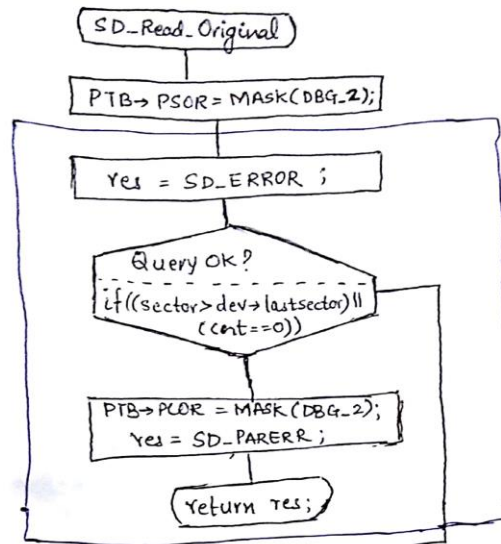 SD_Read_Original
PTB→ PSOR = MASK(DBG_2);
res = SD_ERROR ;
Query OK?
if((sector>dev→lastsector)||
(cnt==0))
PTB→PCOR = MASK(DBG_2);
res = SD_PARERR ;
return res;